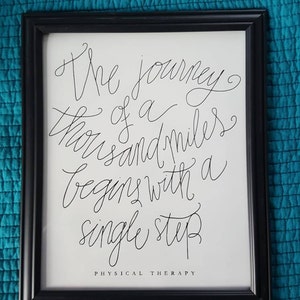 the journey
of a
thousand miles
begins with a
single step
PHYSICAL THERAPY